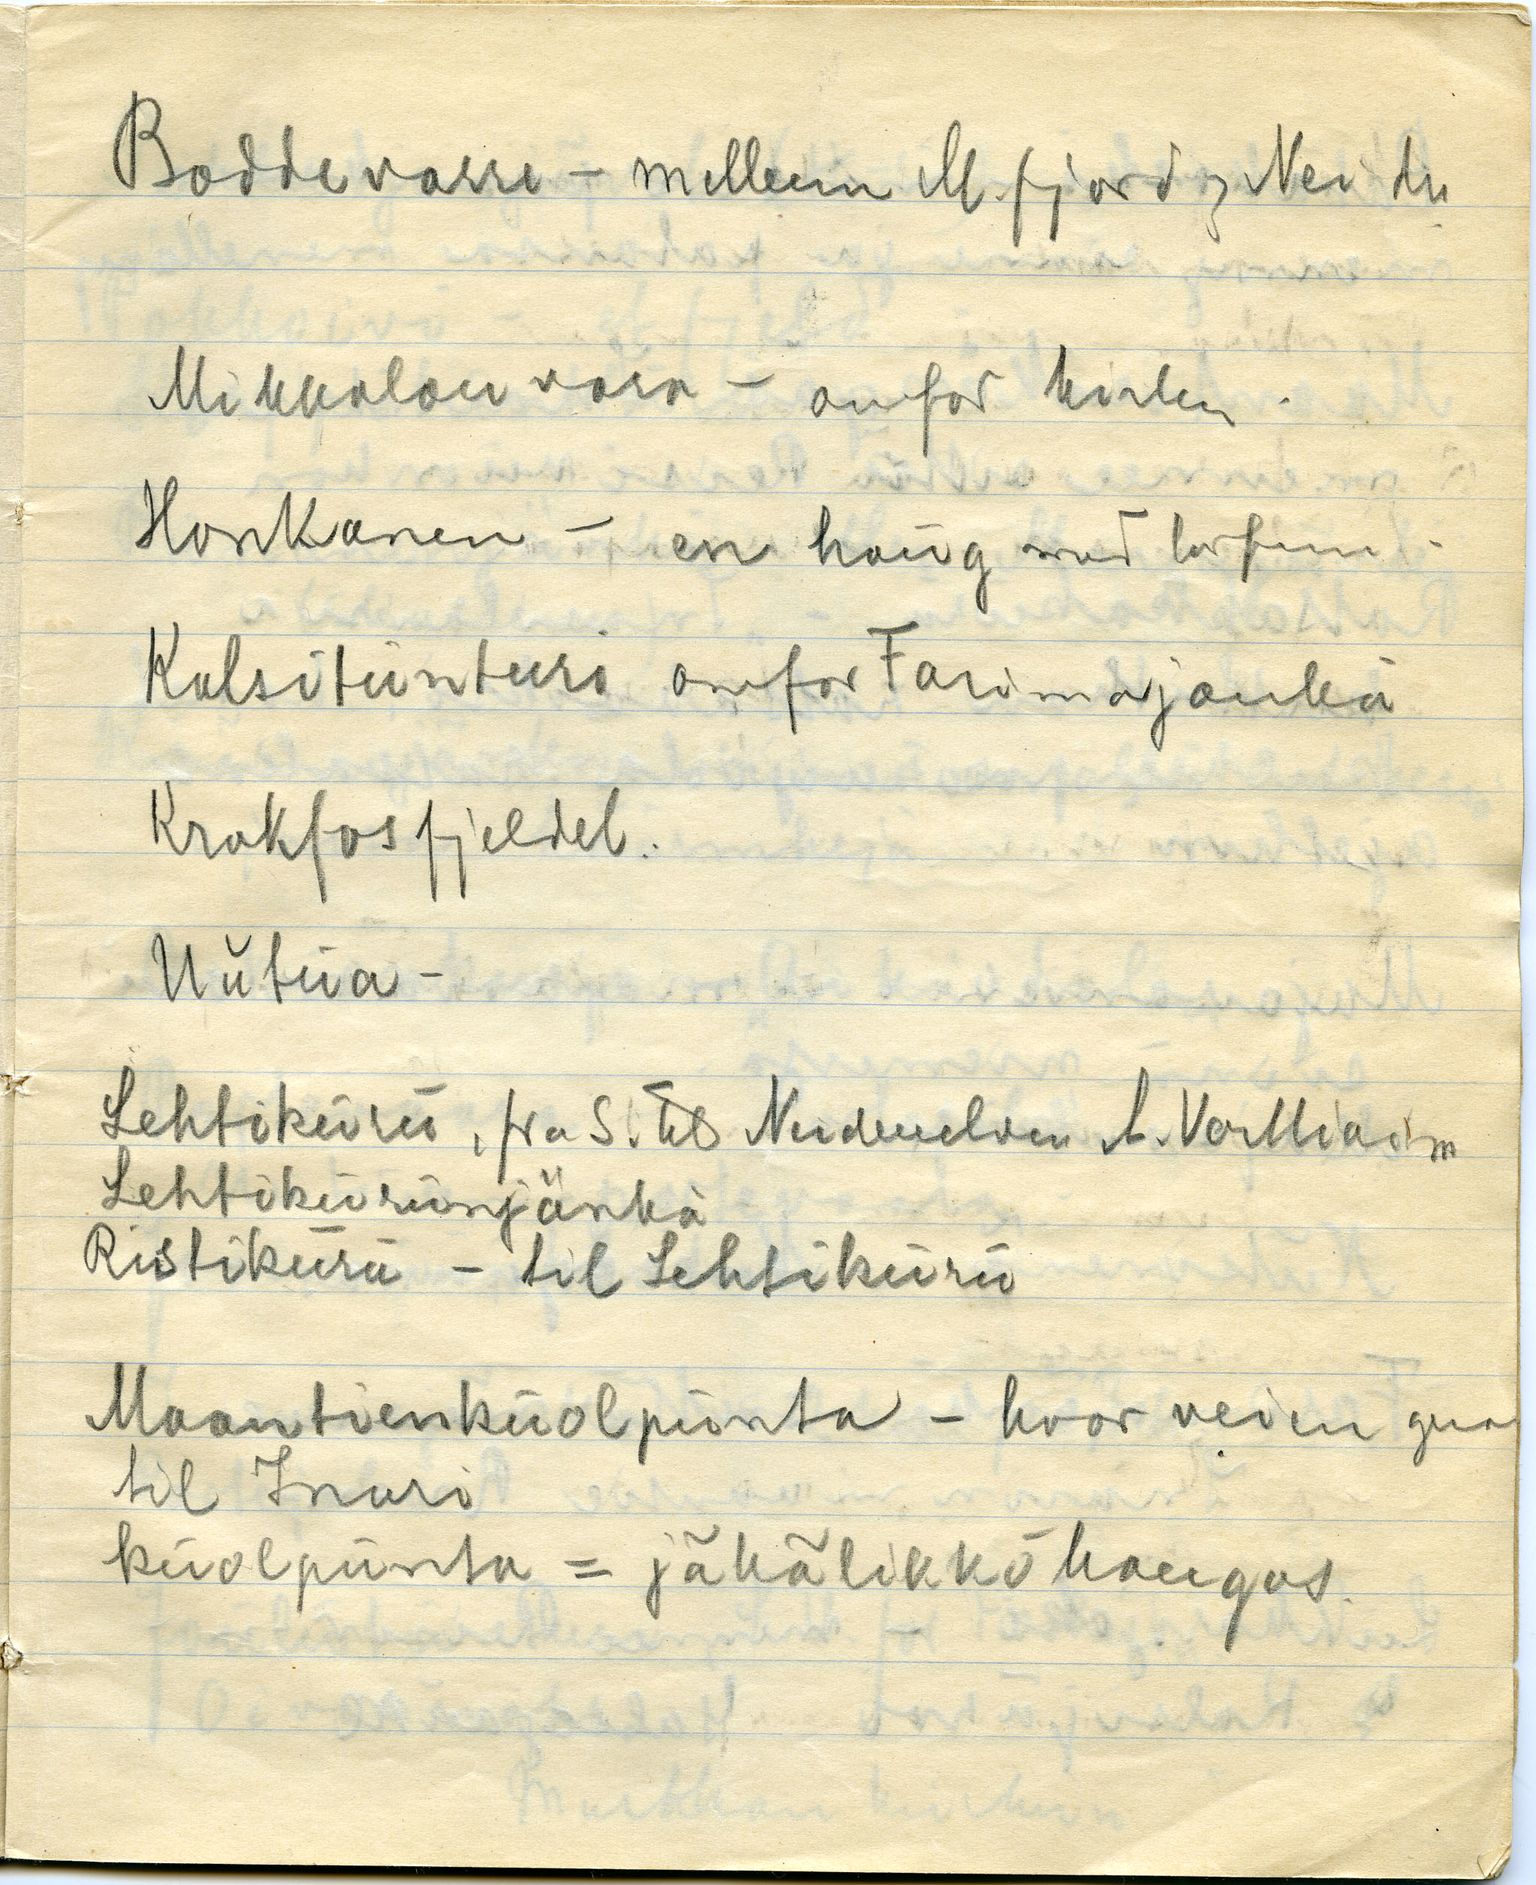 Boddevarre – mellem M. fjord og Neiden
Mikkolan vara – ovnfor kirken.
Honkanen – en haug med torfuru.
Kalsitunturi ovnfor Farimajänkä
Krokfosfjeldet.
Uutua –
Lehtikuru, fra S. til Neidenelven
Lehtikurunjänkä
Ristikuru – til Lehtikuru
Maantienkuolpunta – hvor veien gaar
til Inari
kuolpunta = jäkälikkökangas.